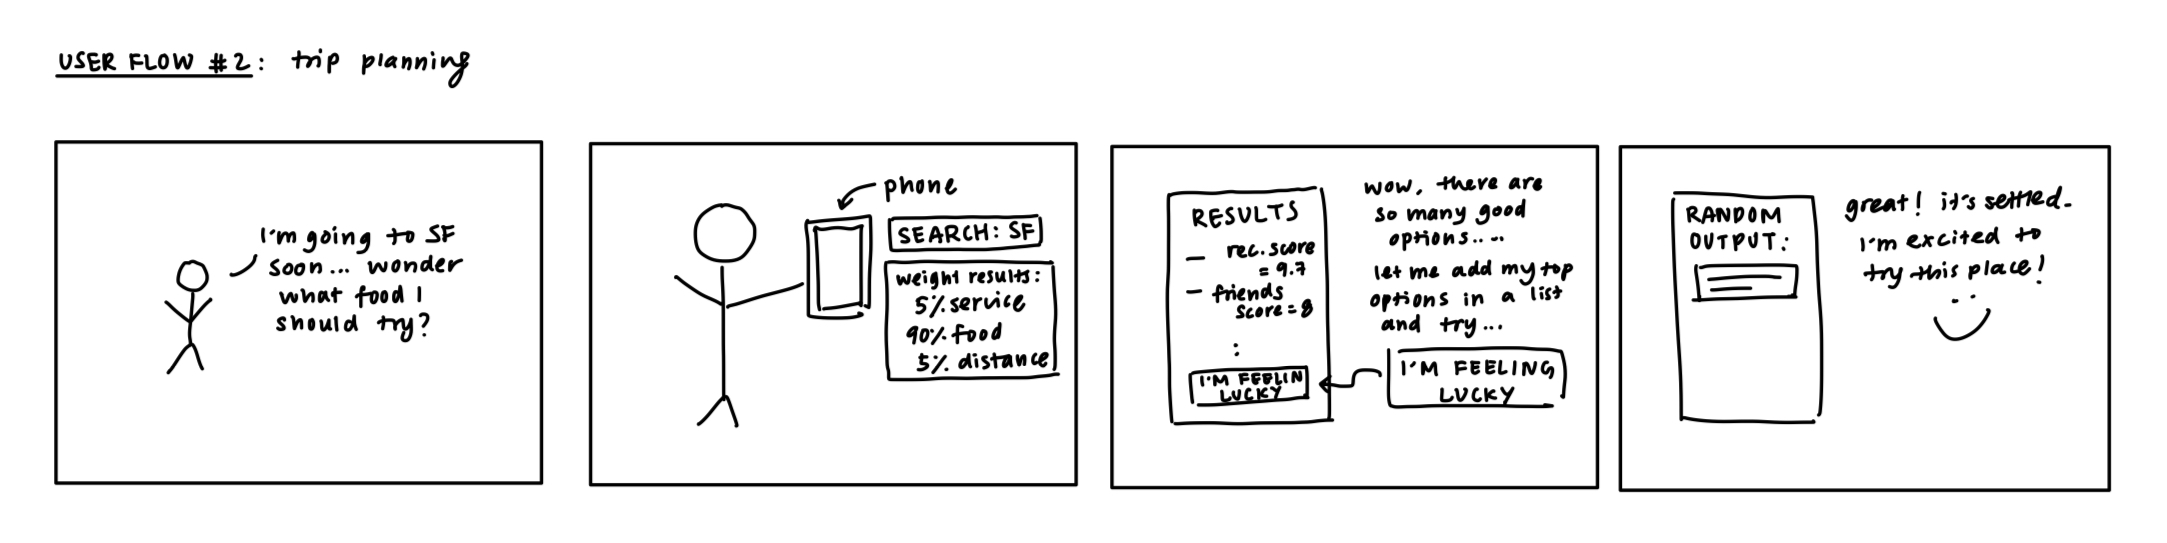 USER FLOW #2: trip planning
I'm going to SF
soon... wonder
what food I
should try?
phone
SEARCH: SF
weight results:
5% service
90% food
5% distance
RESULTS
— rec. score
= 9.7
— friends
score = 8
:
I'M FEELIN
LUCKY
wow, there are
so many good
options....
let me add my top
options in a list
and try...
I'M FEELING
LUCKY
RANDOM
OUTPUT:
great! it's settled.
I'm excited to
try this place!